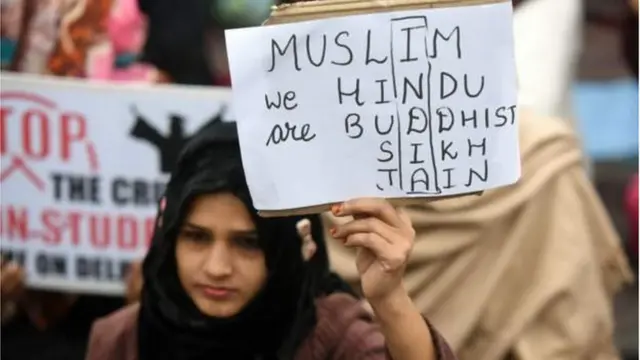 MUSLIM
we HINDU
are BUDDHIST
SIKH
JAIN
TOP
THE CRU
ON-STUDE
ME ON DEL